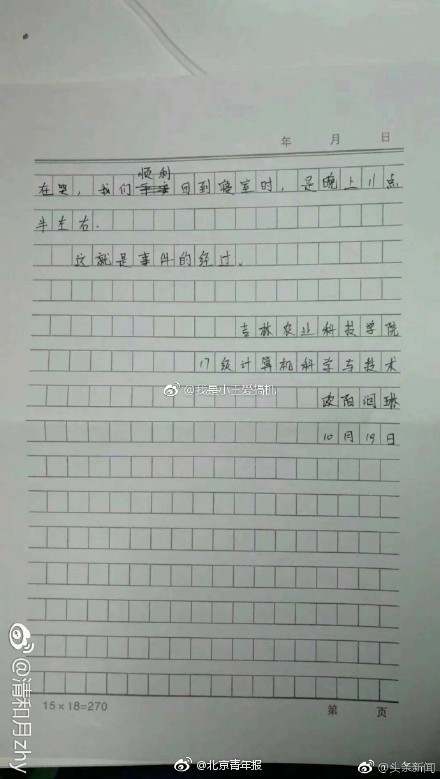 年 月 日
顺利
在哭，我们回到寝室时，是晚上11点
半左右.
这就是事件的经过.
吉林农业科技学院
17级计算机科学与技术
欧阳润琳
10月19日
@我是小王爱搞机
@清和月zhy
15×18=270
第 页
@北京青年报
@头条新闻